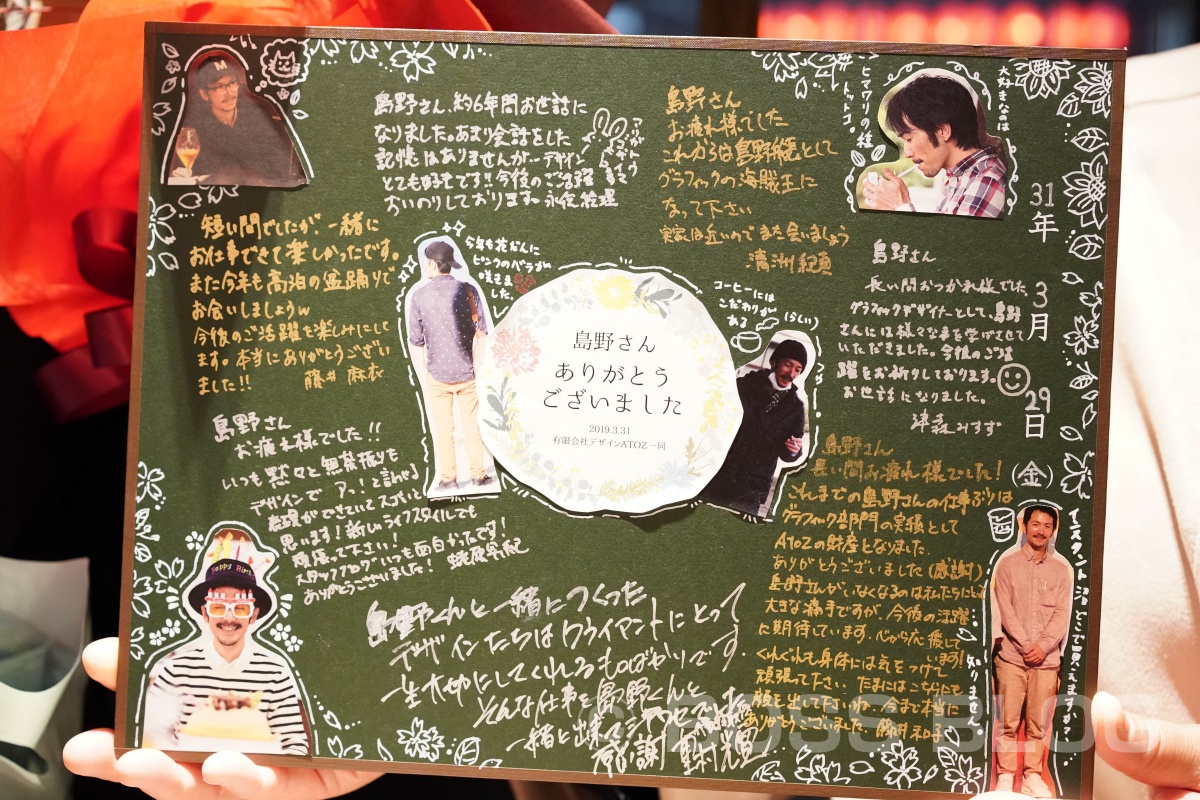 島野さん、約6年間お世話に
なりました。あまり会話をした
記憶はありませんが…デザイン
とても好きです!!今後のご活躍
おいのりしております〜
島野さん
お疲れ様でした
これからは島野総として
グラフィックの海賊王に
なって下さい
実家は近いのでまた会いましょう
大好きなのは
ヒマワリの種
31年3月29日(金)
島野さん
長い間おつかれ様でした。
グラフィックデザイナーとして、島野
さんには様々な事を学ばさせて
いただきました。今後のご活
躍をお祈りしております。
お世話になりました。
津森みすず
短い間でしたが、一緒に
お仕事できて楽しかったです。
また今年も高泊の盆踊りで
お会いしましょうw
今後のご活躍も楽しみにして
ます。本当にありがとうござい
ました!!
藤井 麻衣
今年も花だんに
ピンクのバラが
咲きました。
コーヒーには
こだわりが
ある
(らしい)
島野さん
ありがとう
ございました
2019.3.31
有限会社デザインATOZ一同
島野さん
お疲れ様でした!!
いつも黙々と無茶振りも
デザインで「アっ!と言わす」
表現ができていてスゴイと
思います!新しいライフスタイルでも
頑張って下さい!
スタッフブログいつも面白かったです!
ありがとうございました!
島野さん
長い間お疲れ様でした!
これまでの島野さんの仕事ぶりは
グラフィック部門の実績として
AtoZの財産となりました。
ありがとうございました(感謝)
島野さんがいなくなるのは私たちにとって
大きな痛手ですが、今後の活躍
に期待しています。心から応援して
います!
くれぐれも身体には気をつけて
頑張って下さい。たまにはこちらにも
顔を出して下さいね。今まで本当に
ありがとうございました。藤井 和子
島野くんと一緒につくった
デザインたちはクライアントにとって
一生大切にしてくれるものばかりです。
そんな仕事を島野くんと
一緒と出来てシアワセでした
感謝
Happy Birth
M
BOSS BLOG